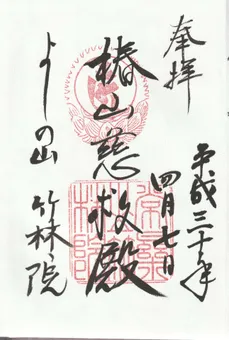 奉拝
平成三十年
四月七日
椿山慈救殿
よしの山
竹林院